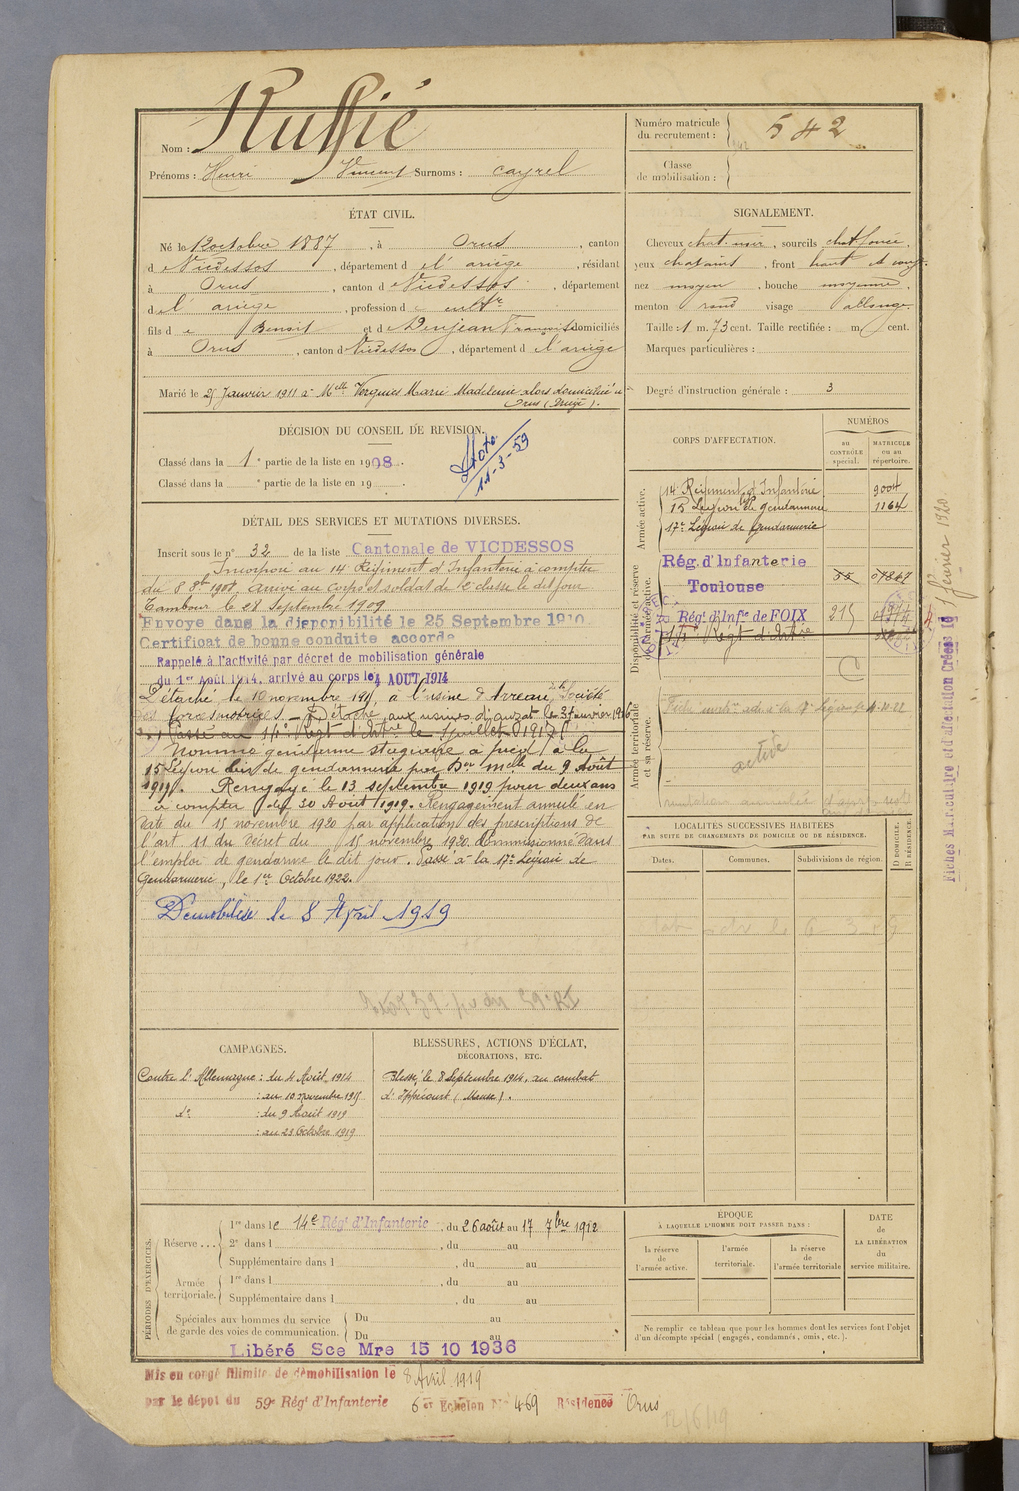 Nom : Ruffié
Prénoms : Henri Vincent Surnoms : Cayrel
Numéro matricule du recrutement : 542
Classe de mobilisation :
ÉTAT CIVIL.
Né le 12 octobre 1887, à Orus, canton
d Vicdessos, département d el' ariège, résidant
à Orus, canton d Vicdessos, département
d el' ariège, profession d cultr
fils d e Benoit et d e Denjean Françoise domiciliés
à Orus, canton d Vicdessos, département d e l'ariège
Marié le 25 Janvier 1911 à Melle Vergnies Marie Madeleine alors domiciliée à
Orus (Ariège).
SIGNALEMENT.
Cheveux chat. noir, sourcils chat. foncé,
yeux chatains, front haut et
nez moyen, bouche moyenne,
menton rond visage allongé
Taille 1 m. 73 cent. Taille rectifiée : m cent.
Marques particulières :
Degré d'instruction générale : 3
DÉCISION DU CONSEIL DE REVISION.
Classé dans la 1e partie de la liste en 1908.
Classé dans la e partie de la liste en 19
11-3-59
DÉTAIL DES SERVICES ET MUTATIONS DIVERSES.
Inscrit sous le n° 32 de la liste Cantonale de VICDESSOS
Incorporé au 14e Régiment d'Infanterie à compter
du 8 8bre 1908, arrivé au corps et soldat de 2e classe le dit jour
Tambour le 28 Septembre 1909
Envoyé dans la disponibilité le 25 Septembre 1910
Certificat de bonne conduite accordé
Rappelé à l'activité par décret de mobilisation générale
du 1er Août 1914, arrivé au corps le 4 AOUT 1914
Détaché le 10 novembre 1915, à l'usine d'Arreau, dite Société
des forces motrices. Détaché aux usines d'auzat le 3 Janvier 1916
Passé au Régt d'Artie le 1 juillet 1917
Nommé gendarme stagiaire à pied à la
15e Légion bis de gendarmerie par Don melle du 9 Août
1919. Rengagé le 13 septembre 1919 pour deux ans
à compter du 30 Août 1919. Rengagement annulé en
date du 15 novembre 1920 par application des prescriptions de
l'art 11 du décret du 15 novembre 1920. Commissionné dans
l'emploi de gendarme le dit jour. Passé à la 17e Légion de
Gendarmerie, le 1er Octobre 1922.
Démobilisé le 8 Avril 1919
CORPS D'AFFECTATION.
NUMÉROS
au CONTRÔLE spécial.
MATRICULE ou au répertoire.
Armée active.
14e Régiment d'Infanterie 9004
15e Légion bis de gendarmerie 1164
17e Légion de Gendarmerie
Disponibilité et réserve de l'armée active.
Rég. d'Infanterie
Toulouse
Régt d'Infie de FOIX 215
Régt d'Artie
Armée territoriale et sa réserve.
activé
LOCALITÉS SUCCESSIVES HABITÉES
PAR SUITE DE CHANGEMENTS DE DOMICILE OU DE RÉSIDENCE.
Dates.
Communes.
Subdivisions de région.
D DOMICILE.
R RÉSIDENCE.
CAMPAGNES.
Contre l'Allemagne : du 4 Août 1914
: au 10 novembre 1915
d° : du 9 Août 1919
: au 23 Octobre 1919
BLESSURES, ACTIONS D'ÉCLAT,
DÉCORATIONS, ETC.
Blessé, le 8 Septembre 1914, au combat
d'Ippécourt (Meuse).
PÉRIODES D'EXERCICES.
Réserve ...
1re dans le 14e Régt d'Infanterie, du 26 août au 17 7bre 1912
2e dans l , du au
Supplémentaire dans l , du au
Armée territoriale.
1re dans l , du au
Supplémentaire dans l , du au
Spéciales aux hommes du service
de garde des voies de communication.
Du au
Du au
Libéré Sce Mre 15 10 1936
ÉPOQUE
À LAQUELLE L'HOMME DOIT PASSER DANS :
la réserve de l'armée active.
l'armée territoriale.
la réserve de l'armée territoriale
DATE de LA LIBÉRATION du service militaire.
Ne remplir ce tableau que pour les hommes dont les services font l'objet
d'un décompte spécial (engagés, condamnés, omis, etc.).
Mis en congé illimité de démobilisation le 8 Avril 1919
par le dépôt du 59e Régt d'Infanterie 6e Echelon N° 469 Résidence Orus
12/6/19
Fiches Matriculaire et d'affectation Créées le février 1920